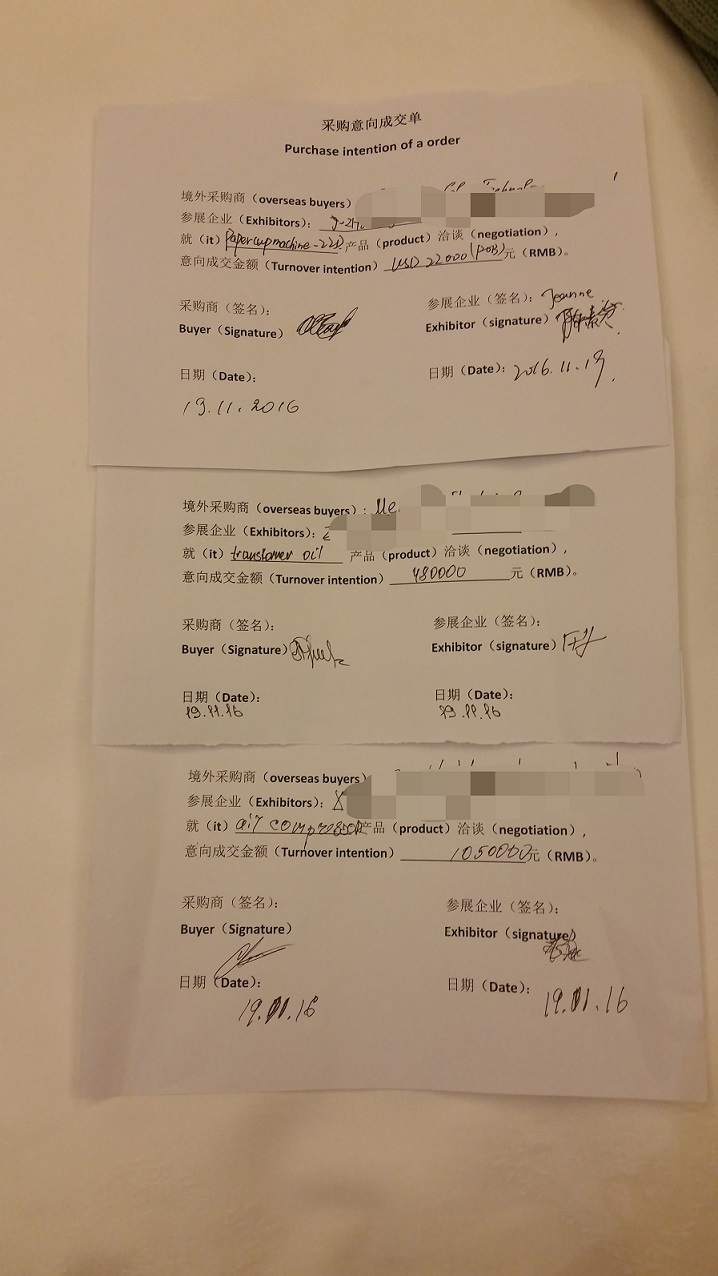 采购意向成交单
Purchase intention of a order
境外采购商（overseas buyers）
参展企业（Exhibitors）：
就（it）Papercupmachine-22D 产品（product）洽谈（negotiation），
意向成交金额（Turnover intention）USD 22000 (FOB) 元（RMB）。
采购商（签名）： 参展企业（签名）：Jeanne
Buyer（Signature） Exhibitor（signature）
日期（Date）： 日期（Date）：2016.11.19.
19.11.2016
境外采购商（overseas buyers）：Me
参展企业（Exhibitors）：
就（it）transtomer oil 产品（product）洽谈（negotiation），
意向成交金额（Turnover intention）480000 元（RMB）。
采购商（签名）： 参展企业（签名）：
Buyer（Signature） Exhibitor（signature）
日期（Date）： 日期（Date）：
19.11.16 19.11.16
境外采购商（overseas buyers）
参展企业（Exhibitors）：X
就（it）air compressor 产品（product）洽谈（negotiation），
意向成交金额（Turnover intention）1050000 元（RMB）。
采购商（签名）： 参展企业（签名）：
Buyer（Signature） Exhibitor（signature）
日期（Date）： 日期（Date）：
19.11.16 19.11.16